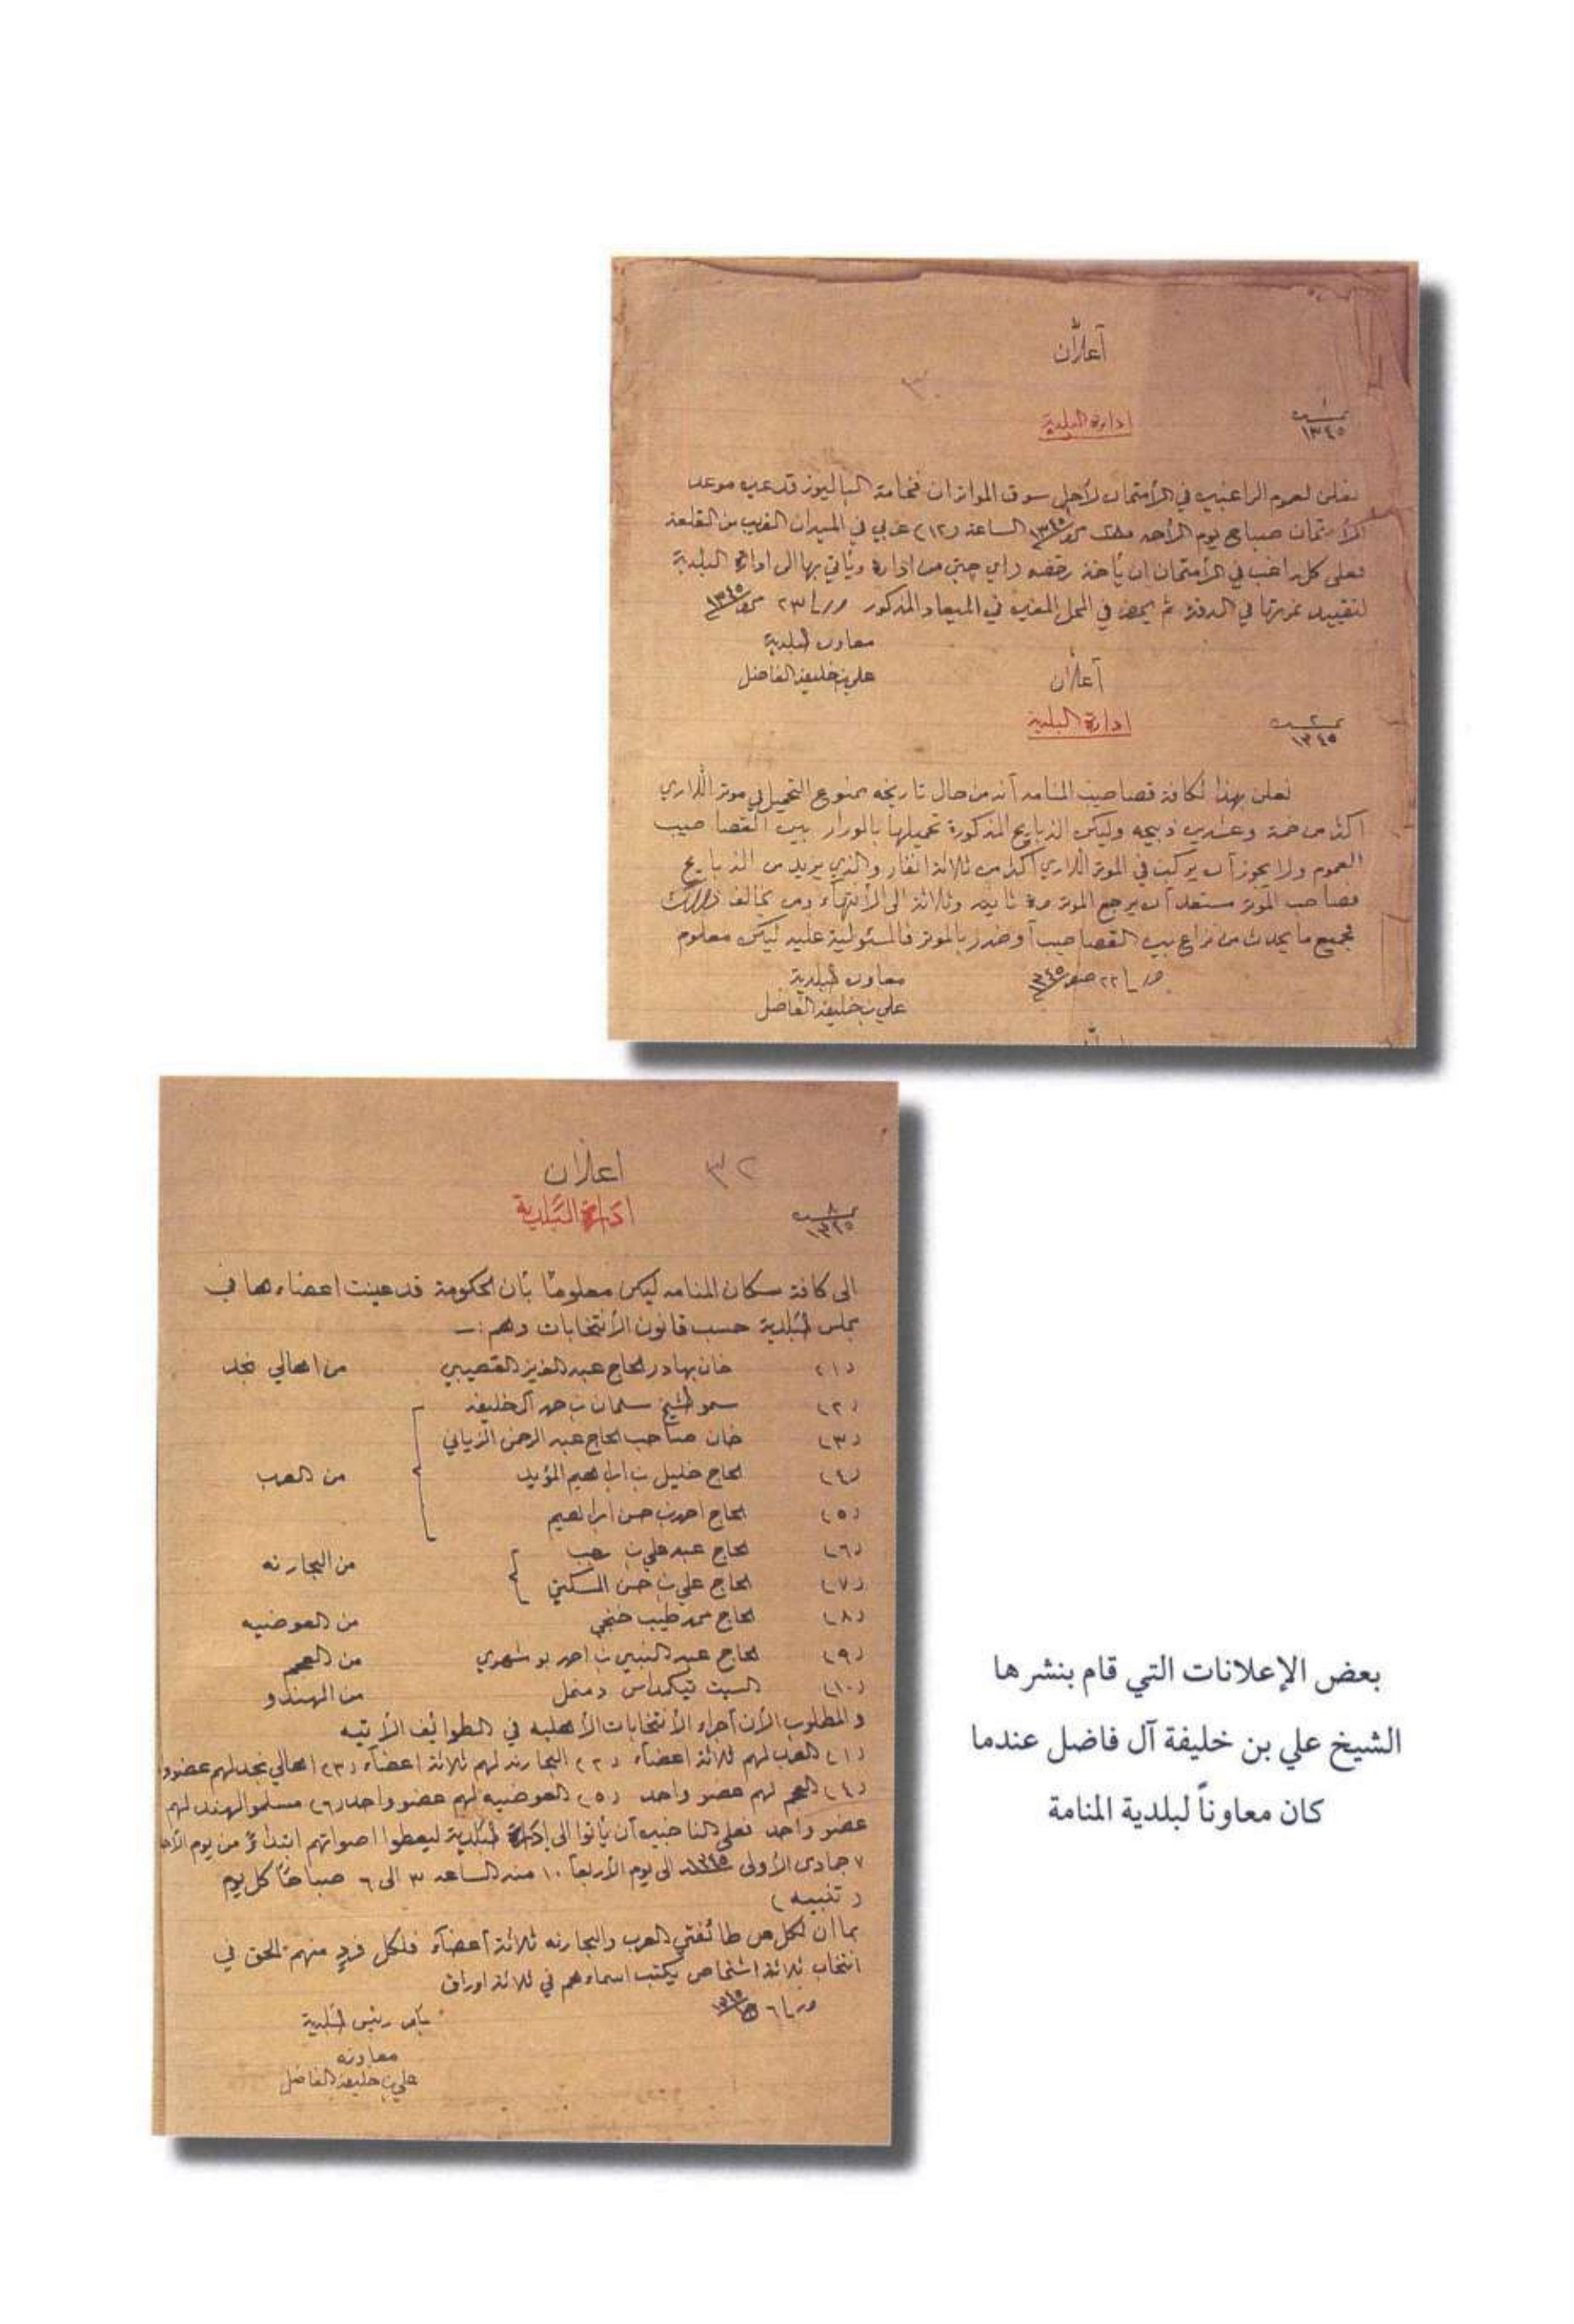 أعلان
٣٠
نمبر ١ ١٣٤٥
ادارة البلدية
نعلن لعموم الراغبين في الأمتحان لأجل سوق المواتر ان فخامة الباليوز قد عين موعد
الأمتحان صباح يوم الأحد ١٣٤٥ الساعة (١٢) عربي في الميدان القريب من القلعة
فعلى كل راغب في الأمتحان ان يأخذ رخصه من ادارة ويأتي بها الى ادارة البلدية
لتقييد نمرتها في الدفتر ثم يحضر في المحل المعين في الميعاد المذكور ٢٣ ١٣٤٥
معاون البلدية
علي بن خليفة الفاضل
أعلان
نمبر ٢ ١٣٤٥
ادارة البلدية
نعلن بهذا لكافة قصاصيب المنامه أنه من حال تاريخه ممنوع التحميل في موتر اللاري
اكثر من خمسة وعشرين ذبيحه وليكن الذبايح المذكورة تحميلها بالورار بين القصاصيب
العموم ولا يجوز أن يركب في الموتر اللاري أكثر من ثلاثة انفار والذي يزيد من الذبايح
فصاحب الموتر مستعد أن يرجع الموتر مرة ثانيه وثلاثة الى الأنتهاء ومن يخالف ذلك
فجميع ما يحدث من نزاع بين القصاصيب أو ضرر بالموتر فالمسئولية عليه ليكن معلوم
٢٢ صفر ١٣٤٥
معاون البلدية
علي بن خليفة الفاضل
٣٢
اعلان
نمبر ٨ ١٣٤٥
ادارة البلدية
الى كافة سكان المنامه ليكن معلوماً بأن الحكومة قد عينت اعضاءها في
مجلس البلدية حسب قانون الأنتخابات وهم :ـ
(١) خان بهادر الحاج عبد العزيز القصيبي من اهالي نجد
(٢) سمو الشيخ سلمان بن حمد آل خليفه
(٣) خان صاحب الحاج عبد الرحمن الزياني
(٤) الحاج خليل بن ابراهيم المؤيد من العرب
(٥) الحاج احمد بن حسن ابراهيم
(٦) الحاج عبد علي بن رجب من البحارنه
(٧) الحاج علي بن حسن
(٨) الحاج محمد طيب خنجي من العوضيه
(٩) الحاج عبد النبي بن احمد بوشهري من العجم
(١٠) السيت تيكمداس دمنمل من الهندو
والمطلوب الأن أجراء الأنتخابات الأهليه في الطوائف الأتيه
(١) العرب لهم ثلاثة اعضاء (٢) البحارنه لهم ثلاثة اعضاء (٣) اهالي نجد لهم عضو و
(٤) العجم لهم عضو واحد (٥) العوضيه لهم عضو واحد (٦) مسلمو الهند لهم
عضو واحد فعلى الناخبين أن يأتوا الى إدارة البلدية ليعطوا اصواتهم ابتداءً من يوم الأحد
٧ جمادى الأولى ١٣٤٥ الى يوم الأربعا ١٠ منه الساعه ٣ الى ٦ صباحاً كل يوم
(تنبيه)
بما ان لكل من طائفتي العرب والبحارنه ثلاثة أعضاء فلكل فردٍ منهم الحق في
انتخاب ثلاثة اشخاص يكتب اسماءهم في ثلاثة اوراق
٦ ١٣٤٥
بأمر رئيس البلدية
معاونه
علي بن خليفة الفاضل
بعض الإعلانات التي قام بنشرها
الشيخ علي بن خليفة آل فاضل عندما
كان معاوناً لبلدية المنامة